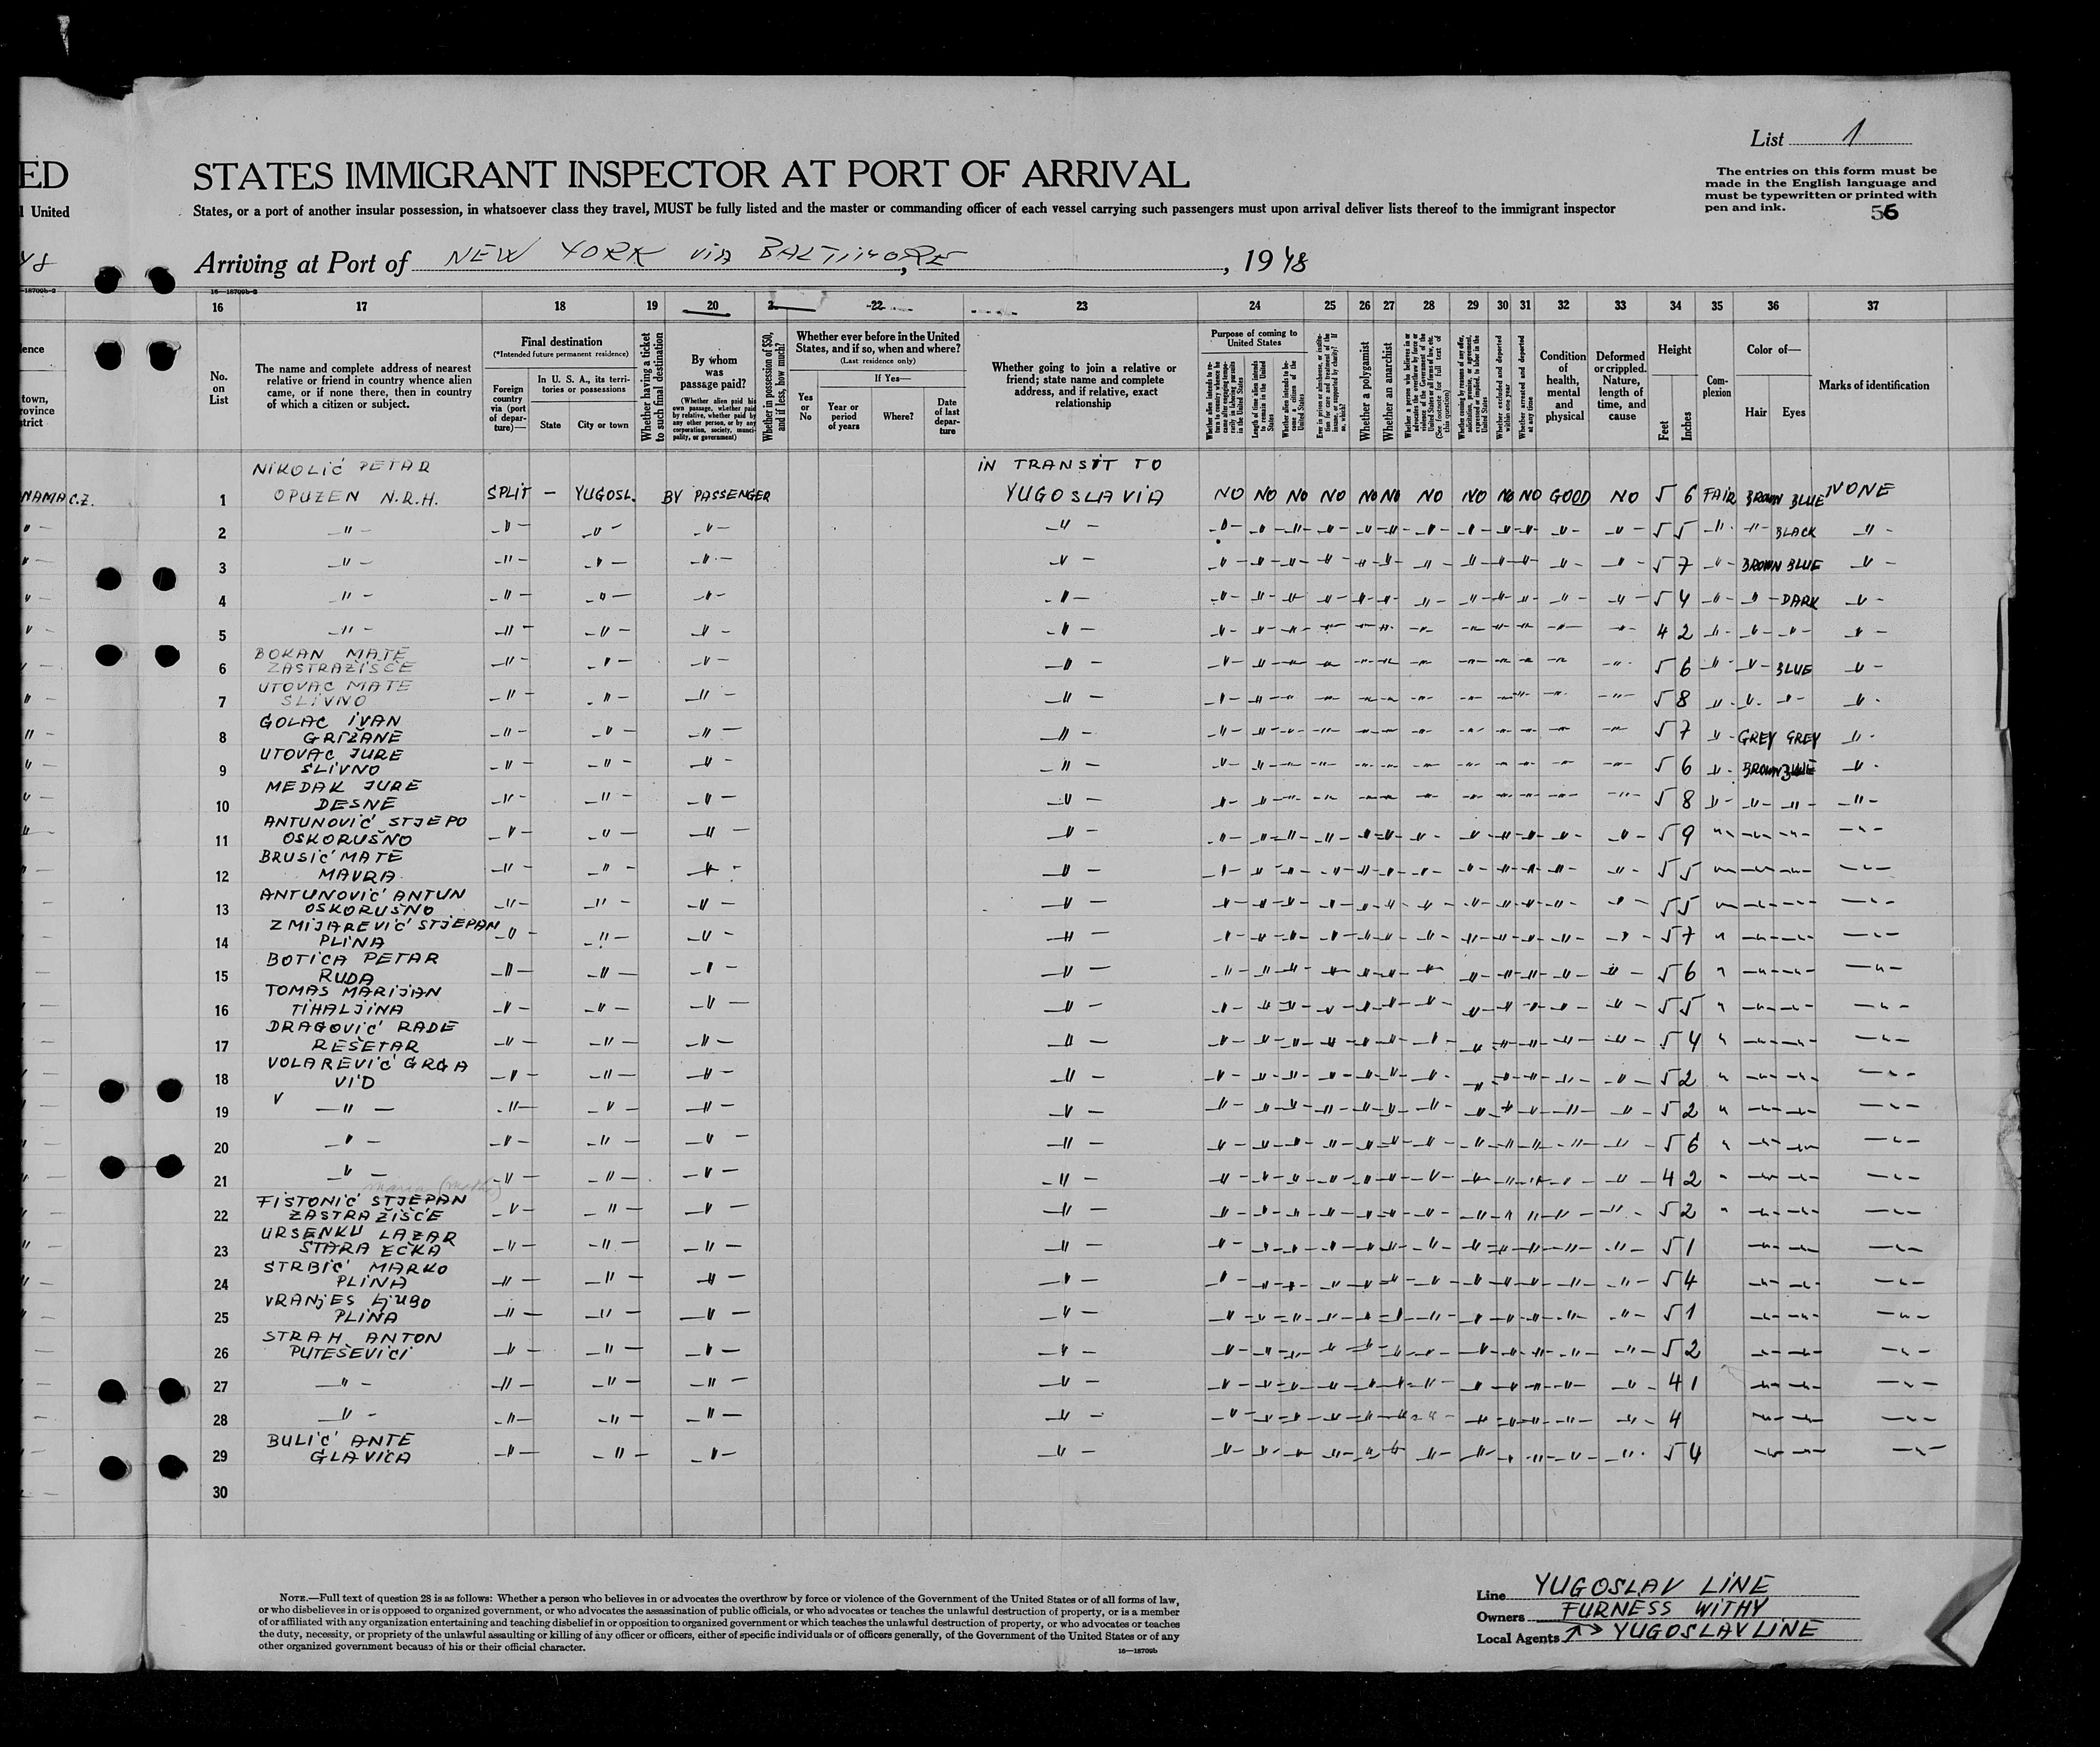 List 1
ED STATES IMMIGRANT INSPECTOR AT PORT OF ARRIVAL
The entries on this form must be
made in the English language and
must be typewritten or printed with
pen and ink. 56
United States, or a port of another insular possession, in whatsoever class they travel, MUST be fully listed and the master or commanding officer of each vessel carrying such passengers must upon arrival deliver lists thereof to the immigrant inspector
Arriving at Port of NEW YORK via BALTIMORE, 1948
16—18709b-2
16 17 18 19 20 22 23 24 25 26 27 28 29 30 31 32 33 34 35 36 37
No. on List
The name and complete address of nearest
relative or friend in country whence alien
came, or if none there, then in country
of which a citizen or subject.
Final destination
(*Intended future permanent residence)
Foreign country via (port of departure)—
In U. S. A., its territories or possessions
State
City or town
Whether having a ticket to such final destination
By whom was passage paid?
(Whether alien paid his own passage, whether paid by relative, whether paid by any other person, or by any corporation, society, municipality, or government)
Whether in possession of $50, and if less, how much?
Whether ever before in the United States, and if so, when and where?
(Last residence only)
Yes or No
If Yes—
Year or period of years
Where?
Date of last departure
Whether going to join a relative or
friend; state name and complete
address, and if relative, exact
relationship
Purpose of coming to United States
Whether a polygamist
Whether an anarchist
Whether arrested and deported at any time
Condition of health, mental and physical
Deformed or crippled. Nature, length of time, and cause
Height
Feet
Inches
Complexion
Color of—
Hair
Eyes
Marks of identification
NIKOLIĆ PETAR IN TRANSIT TO
NAMA C.Z. 1 OPUZEN N.R.H. SPLIT — YUGOSL. BY PASSENGER YUGOSLAVIA NO NO NO NO NO NO NO NO NO NO GOOD NO 5 6 FAIR BROWN BLUE NONE
2 —"— —"— —"— —"— —"— 5 5 —"— —"— BLACK —"—
3 —"— —"— —"— —"— —"— 5 7 —"— BROWN BLUE —"—
4 —"— —"— —"— —"— —"— 5 4 —"— —"— DARK —"—
5 —"— —"— —"— —"— —"— 4 2 —"— —"— —"— —"—
BOKAN MATE
6 ZASTRAŽIŠĆE —"— —"— —"— —"— 5 6 —"— —"— BLUE —"—
UTOVAC MATE
7 SLIVNO —"— —"— —"— —"— 5 8 —"— —"— —"— —"—
GOLAC IVAN
8 GRIŽANE —"— —"— —"— —"— 5 7 —"— GREY GREY —"—
UTOVAC JURE
9 SLIVNO —"— —"— —"— —"— 5 6 —"— BROWN BLUE —"—
MEDAK JURE
10 DESNE —"— —"— —"— —"— 5 8 —"— —"— —"— —"—
ANTUNOVIĆ STJEPO
11 OSKORUŠNO —"— —"— —"— —"— 5 9 —"— —"— —"— —"—
BRUSIĆ MATE
12 MAVRA —"— —"— —"— —"— 5 5 —"— —"— —"— —"—
ANTUNOVIĆ ANTUN
13 OSKORUŠNO —"— —"— —"— —"— 5 5 —"— —"— —"— —"—
ZMIJAREVIĆ STJEPAN
14 PLINA —"— —"— —"— —"— 5 7 " —"— —"— —"—
BOTICA PETAR
15 RUDA —"— —"— —"— —"— 5 6 " —"— —"— —"—
TOMAS MARIJAN
16 TIHALJINA —"— —"— —"— —"— 5 5 " —"— —"— —"—
DRAGOVIĆ RADE
17 REŠETAR —"— —"— —"— —"— 5 4 " —"— —"— —"—
VOLAREVIĆ GRGA
18 VID —"— —"— —"— —"— 5 2 " —"— —"— —"—
19 —"— —"— —"— —"— —"— 5 2 " —"— —"— —"—
20 —"— —"— —"— —"— —"— 5 6 " —"— —"— —"—
21 —"— —"— —"— —"— —"— 4 2 " —"— —"— —"—
FISTONIĆ STJEPAN
22 ZASTRAŽIŠĆE —"— —"— —"— —"— 5 2 " —"— —"— —"—
URSENKU LAZAR
23 STARA EČKA —"— —"— —"— —"— 5 1 —"— —"— —"—
STRBIĆ MARKO
24 PLINA —"— —"— —"— —"— 5 4 —"— —"— —"—
VRANJES LJUBO
25 PLINA —"— —"— —"— —"— 5 1 —"— —"— —"—
STRAH ANTON
26 PUTEŠEVICI —"— —"— —"— —"— 5 2 —"— —"— —"—
27 —"— —"— —"— —"— —"— 4 1 —"— —"— —"—
28 —"— —"— —"— —"— —"— 4 —"— —"— —"—
BULIĆ ANTE
29 GLAVICA —"— —"— —"— —"— 5 4 —"— —"— —"—
30
NOTE.—Full text of question 28 is as follows: Whether a person who believes in or advocates the overthrow by force or violence of the Government of the United States or of all forms of law,
or who disbelieves in or is opposed to organized government, or who advocates the assassination of public officials, or who advocates or teaches the unlawful destruction of property, or is a member
of or affiliated with any organization entertaining and teaching disbelief in or opposition to organized government or which teaches the unlawful destruction of property, or who advocates or teaches
the duty, necessity, or propriety of the unlawful assaulting or killing of any officer or officers, either of specific individuals or of officers generally, of the Government of the United States or of any
other organized government because of his or their official character.
16—18709b
Line YUGOSLAV LINE
Owners FURNESS WITHY
Local Agents YUGOSLAV LINE